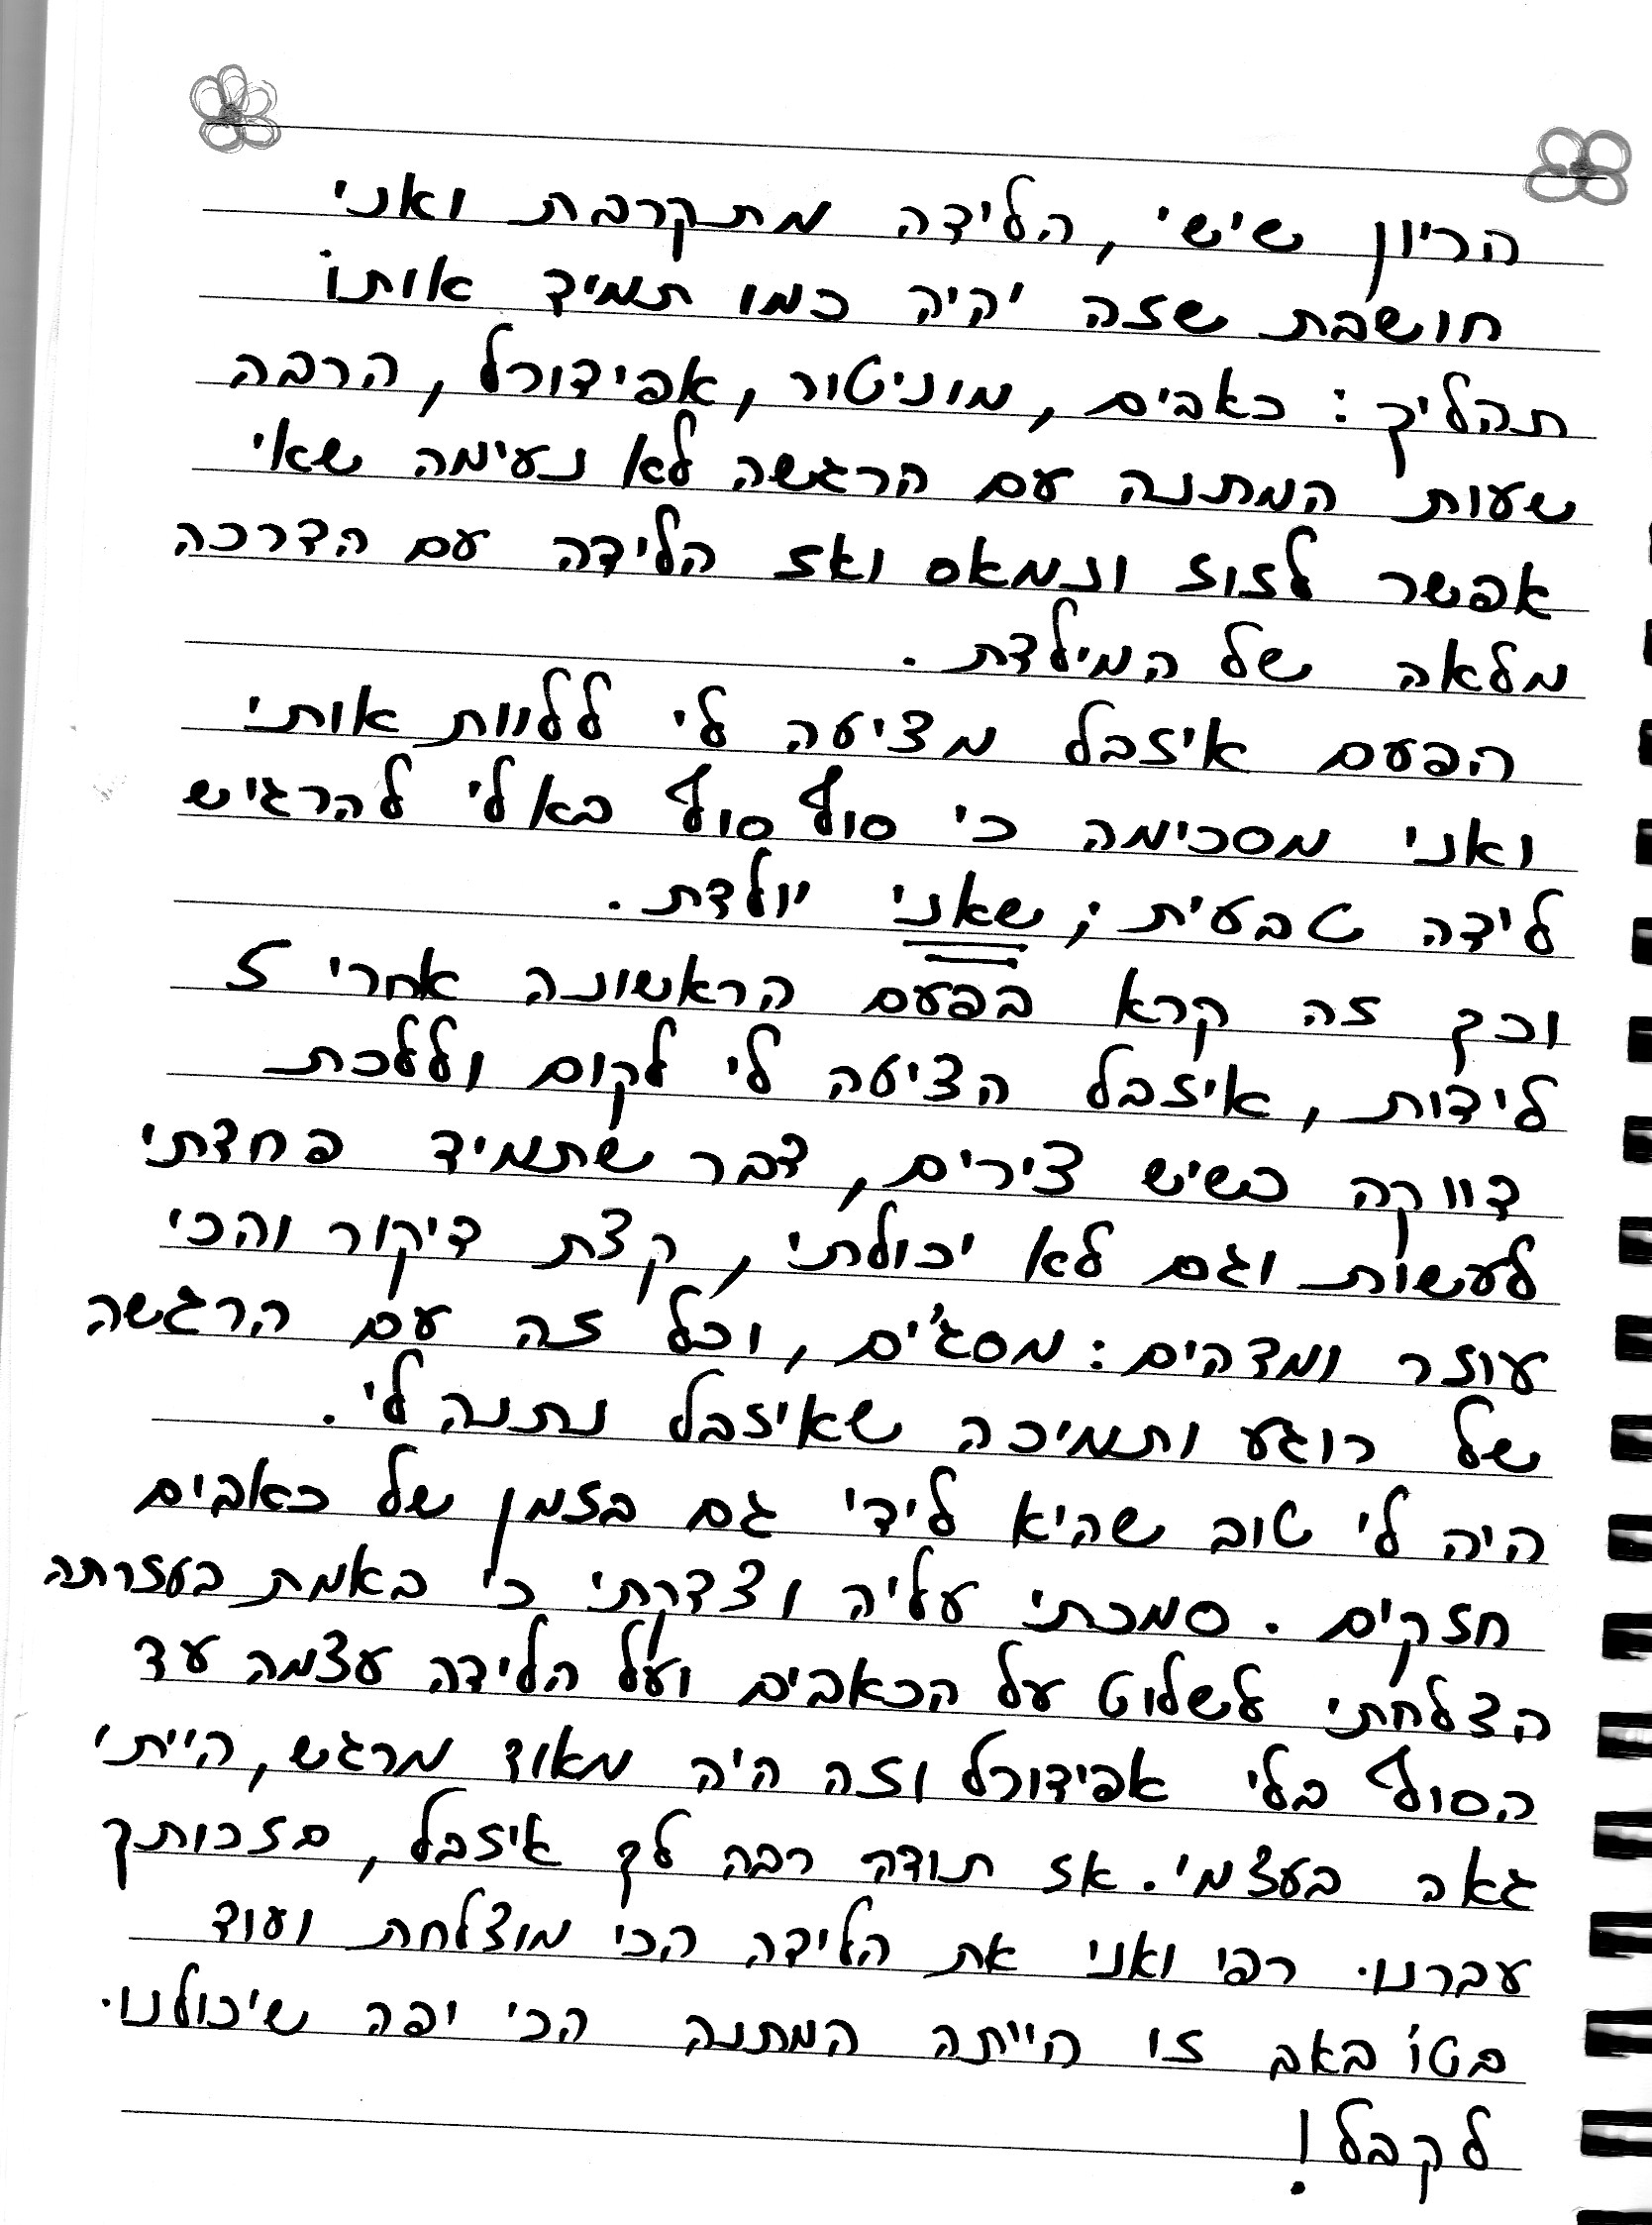 הריון שישי, הלידה מתקרבת ואני
חושבת שזה יהיה כמו תמיד אותו
תהליך: כאבים, מוניטור, אפידורל, הרבה
שעות המתנה עם הרגשה לא נעימה שאי
אפשר לזוז ונמאס ואז הלידה עם הדרכה
מלאה של המילדת.
הפעם איזבל מציעה לי ללוות אותי
ואני מסכימה כי סוף סוף בא לי להרגיש
לידה טבעית; שאני יולדת.
וכך זה קרא בפעם הראשונה אחרי 5
לידות, איזבל הציעה לי לקום וללכת
דווקה כשיש צירים, דבר שתמיד פחדתי
לעשות וגם לא יכולתי, קצת דיקור והכי
עוזר ומדהים: מסג'ים, וכל זה עם הרגשה
של רוגע ותמיכה שאיזבל נתנה לי.
היה לי טוב שהיא לידי גם בזמן של כאבים
חזקים. סמכתי עליה וצדקתי כי באמת בעזרתה
הצלחתי לשלוט על הכאבים ועל הלידה עצמה עד
הסוף בלי אפידורל וזה היה מאוד מרגש, הייתי
גאה בעצמי. אז תודה רבה לך איזבל, בזכותך
עברנו רפי ואני את הלידה הכי מוצלחת ועוד
בטו באב זו הייתה המתנה הכי יפה שיכולנו
לקבל!